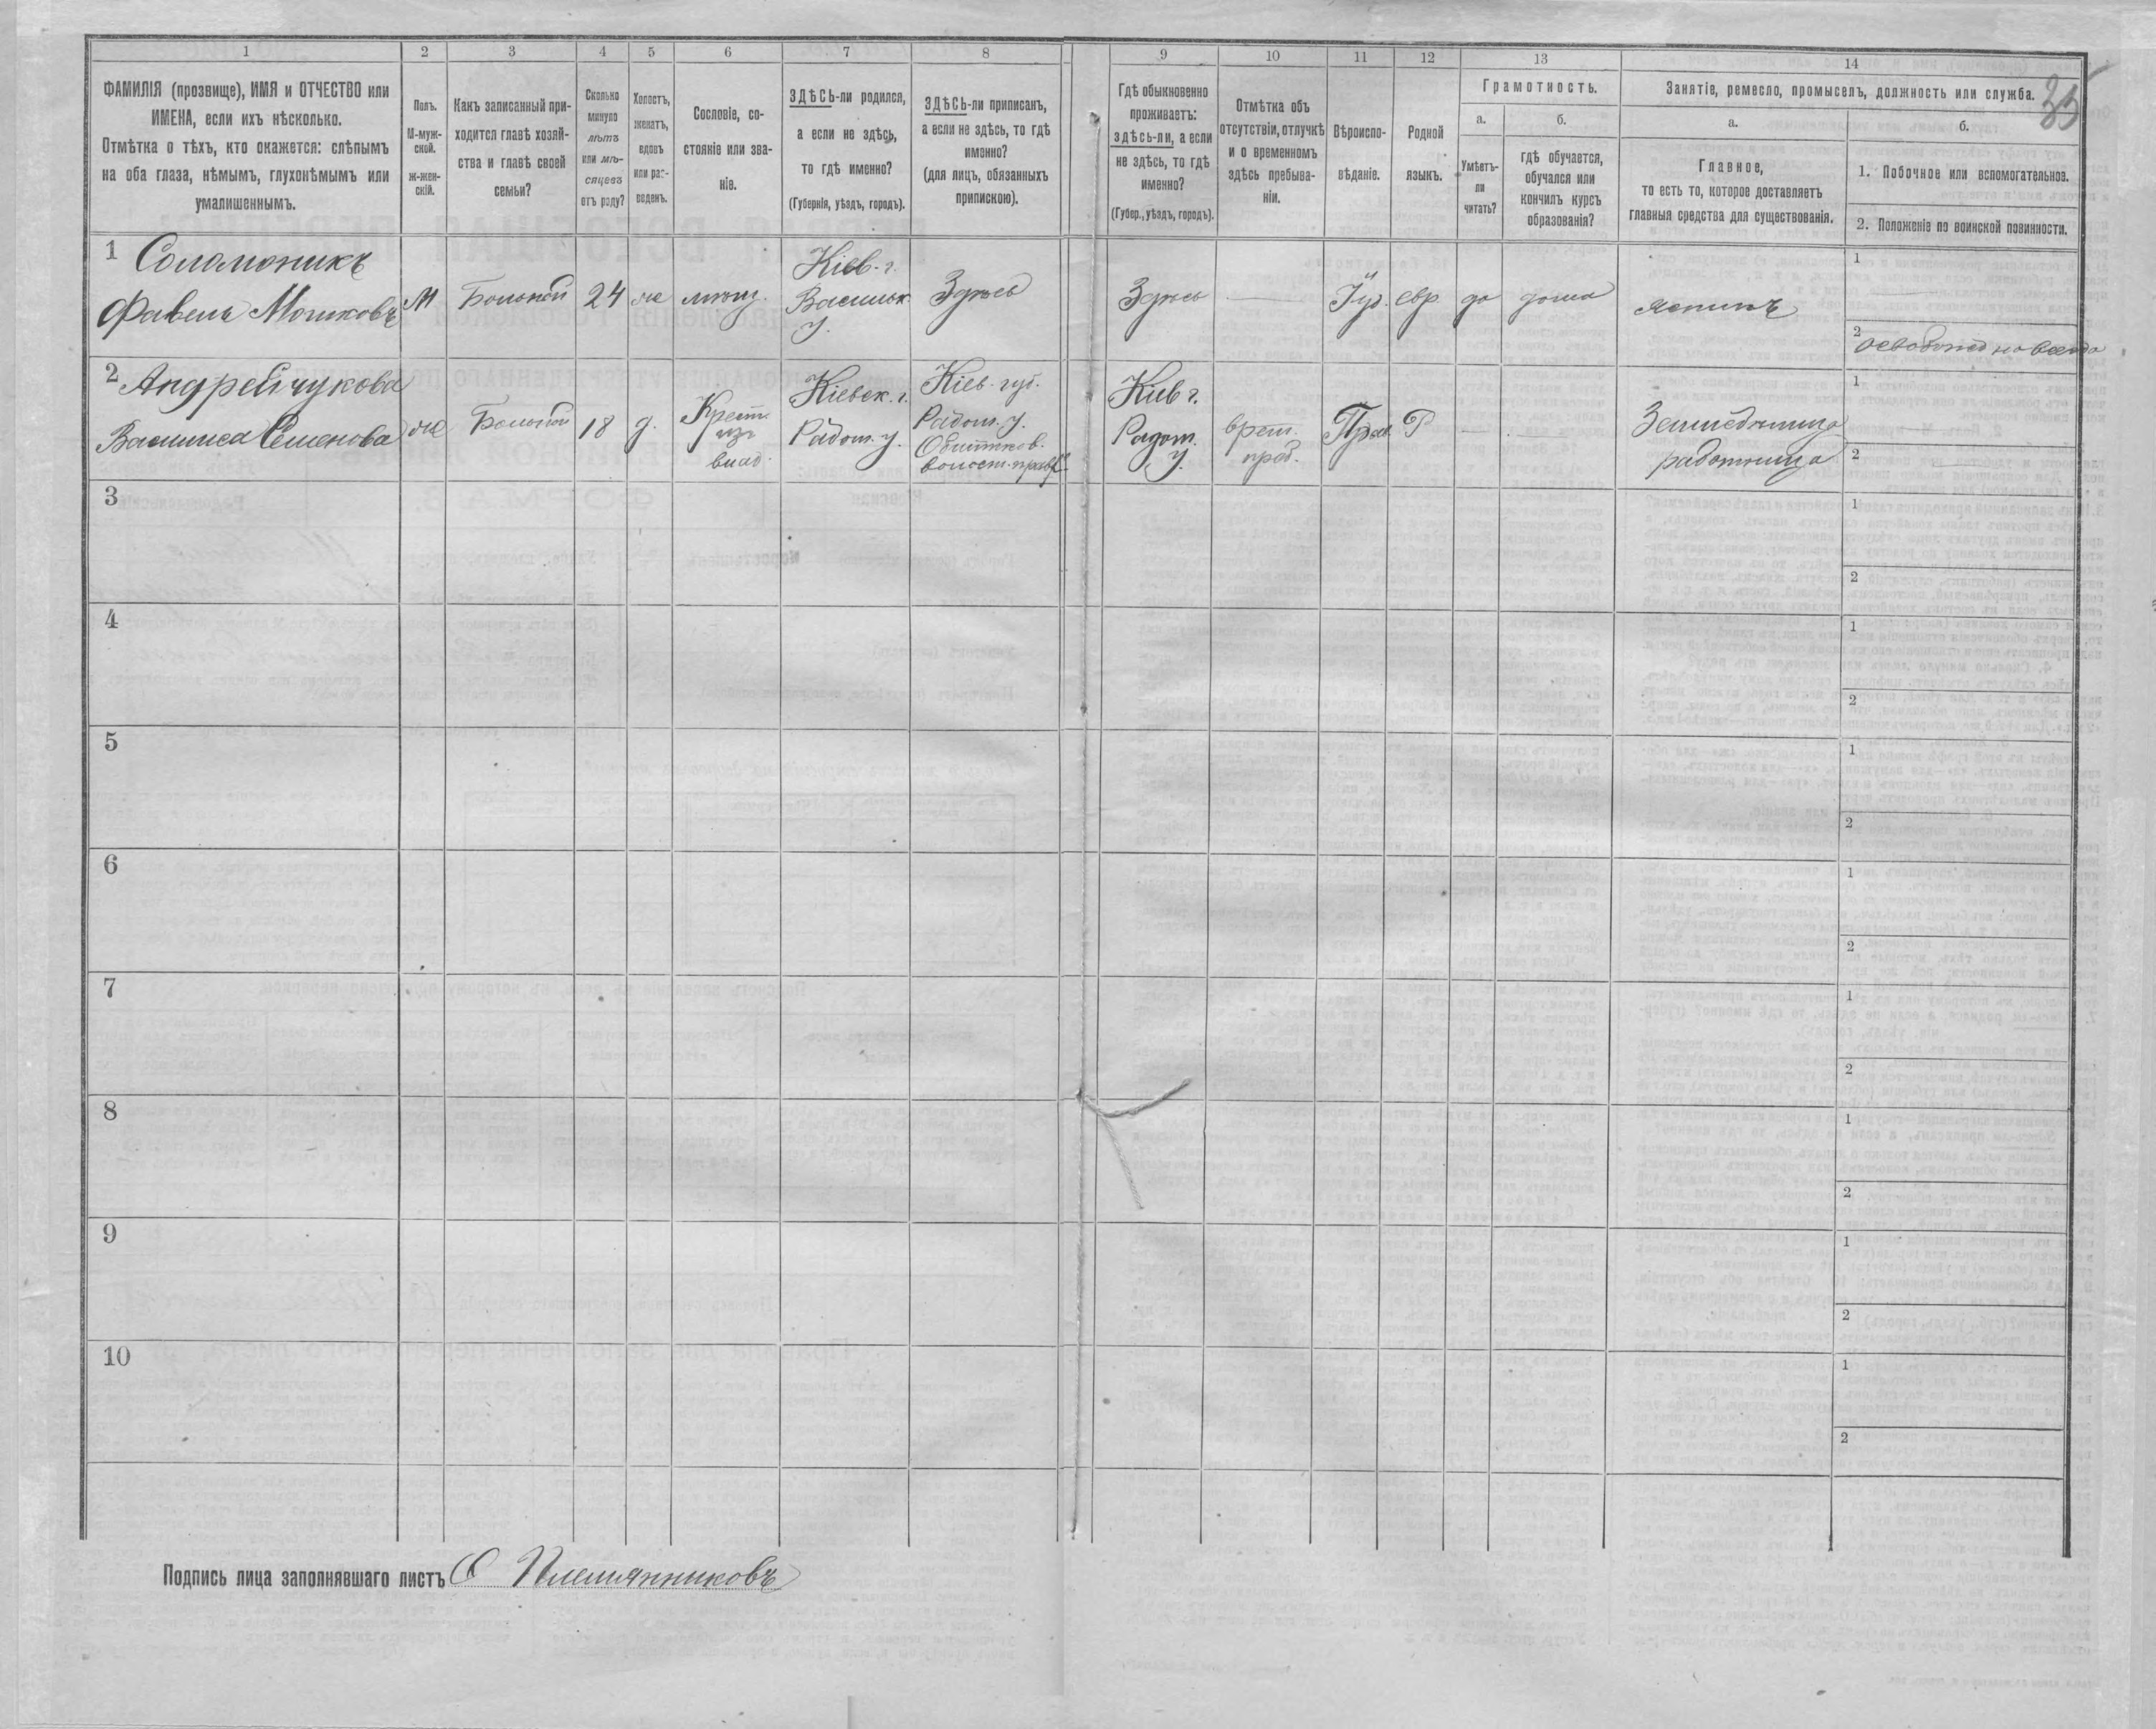 1 2 3 4 5 6 7 8 9 10 11 12 13 14
35
ФАМИЛІЯ (прозвище), ИМЯ и ОТЧЕСТВО или
ИМЕНА, если ихъ нѣсколько.
Отмѣтка о тѣхъ, кто окажется: слѣпымъ
на оба глаза, нѣмымъ, глухонѣмымъ или
умалишеннымъ.
Полъ.
М-муж-
ской.
Ж-жен-
скій.
Какъ записанный при-
ходится главѣ хозяй-
ства и главѣ своей
семьи?
Сколько
минуло
лѣтъ
или мѣ-
сяцевъ
отъ роду?
Холостъ,
женатъ,
вдовъ
или раз-
веденъ.
Сословіе, со-
стояніе или зва-
ніе.
ЗДѢСЬ-ли родился,
а если не здѣсь,
то гдѣ именно?
(Губернія, уѣздъ, городъ).
ЗДѢСЬ-ли приписанъ,
а если не здѣсь, то гдѣ
именно?
(для лицъ, обязанныхъ
припискою).
Гдѣ обыкновенно
проживаетъ:
здѣсь-ли, а если
не здѣсь, то гдѣ
именно?
(Губер., уѣздъ, городъ).
Отмѣтка объ
отсутствіи, отлучкѣ
и о временномъ
здѣсь пребыва-
ніи.
Вѣроиспо-
вѣданіе.
Родной
языкъ.
Грамотность.
а.
Умѣетъ-
ли
читать?
б.
гдѣ обучается,
обучался или
кончилъ курсъ
образованія?
Занятіе, ремесло, промыселъ, должность или служба.
а.
Главное,
то есть то, которое доставляетъ
главныя средства для существованія.
б.
1. Побочное или вспомогательное.
2. Положеніе по воинской повинности.
1 Соломоникъ
Фавель Мошковъ
М
Больной
24
же
мѣщ.
Кіев. г.
Васильк.
у.
Здѣсь
Здѣсь
Іуд.
евр
да
дома
1
2 освобожд навсегда
2 Андрейчукова
Василиса Семенова
же
Больной
18
д.
Крест
изъ
влад.
Кіевск. г.
Радом. у.
Кіев. губ.
Радом. у.
волост. прав.
Кіев г.
Радом.
у.
врем.
преб.
Прав.
Р
Земледѣлица
работница
1
2
3
1
2
4
1
2
5
1
2
6
1
2
7
1
2
8
1
2
9
1
2
10
1
2
Подпись лица заполнявшаго листъ Племянниковъ